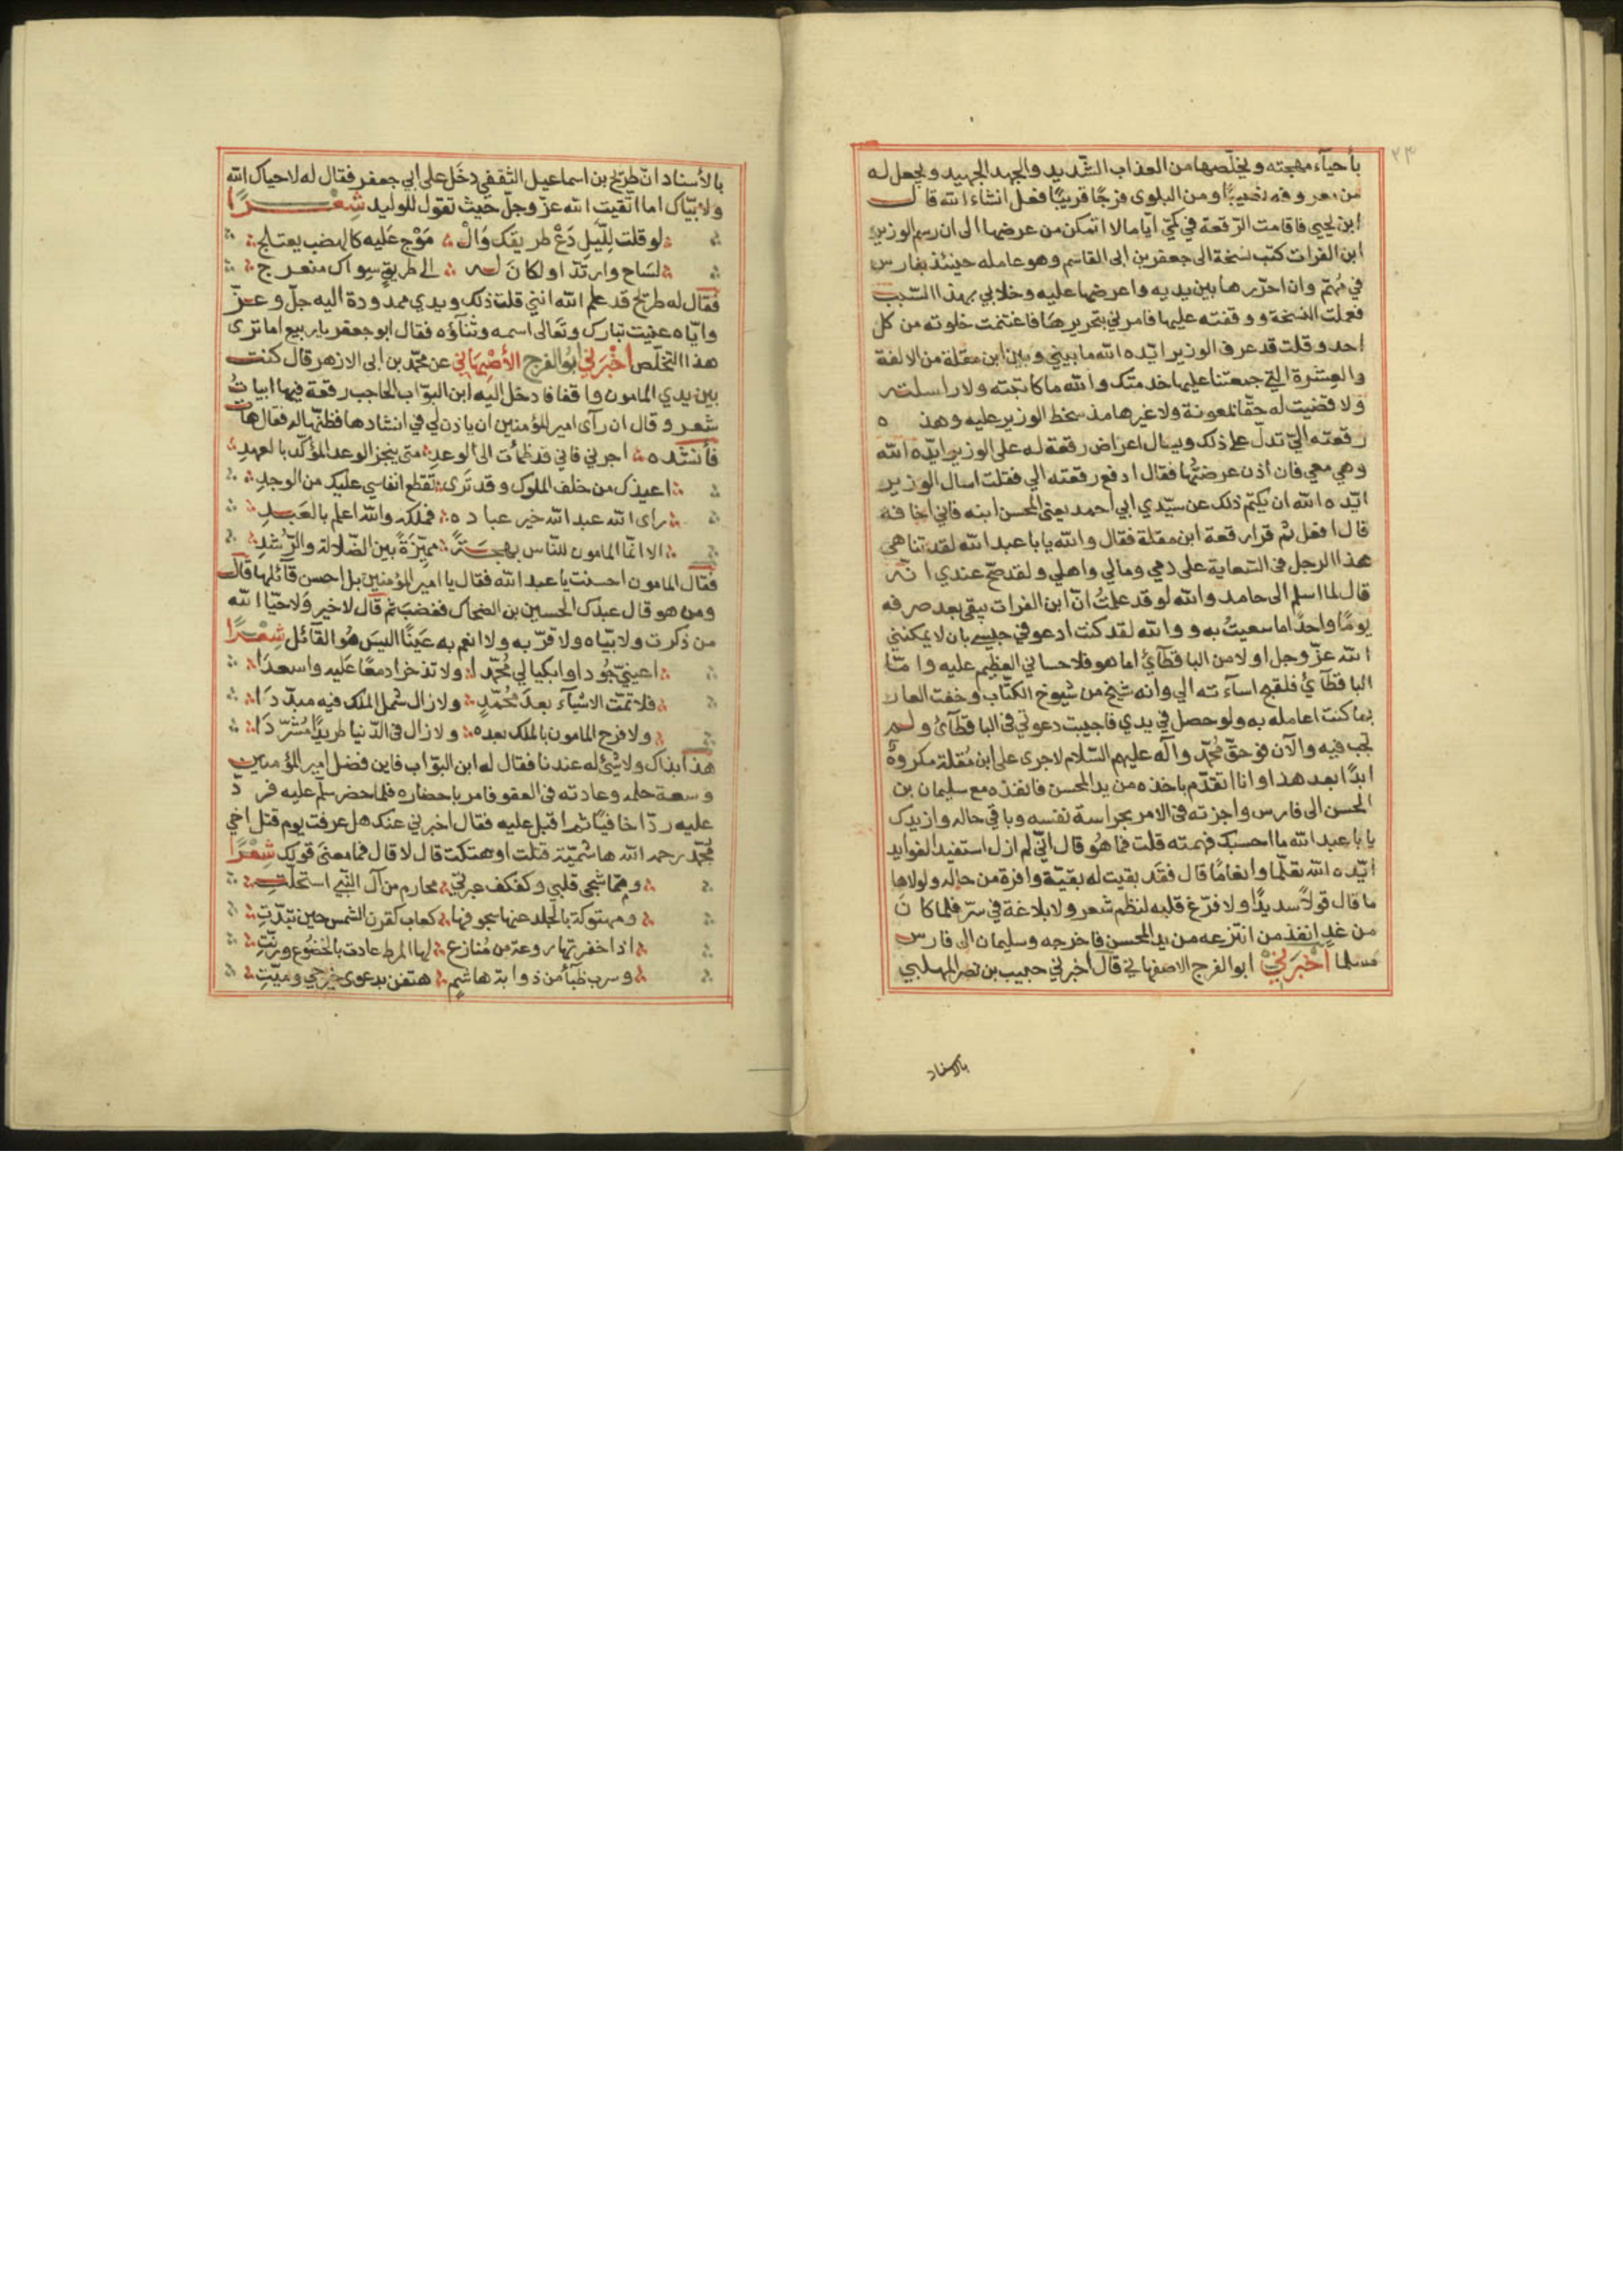 ٢٣
بأحيآء مهجته و يخلّصها من العذاب الشّديد والجهد الجهيد و يجعل له
من معروفه نصيبًا ومن البلوى فرجًا قريبًا فعل انشاء الله قال
ابن يحيى فاقامت الرّقعة في كمّي ايّاما لا اتمكن من عرضها الى ان رسم الوزير
ابن الفرات كتب نسخة الى جعفر بن ابى القاسم وهو عامله حينئذ بفارس
في مُهمّ وان احرّرها بين يديه واعرضها عليه وخلابي بهذا السّبب
فعملت النسخة ووقفته عليها فامرني بتحريرها فاغتنمت خلوته من كل
احد وقلت قد عرف الوزير ايّده الله ما بيني وبين ابن مقلة من الالفة
والعشرة التي جمعتنا عليها خدمتك والله ما كاتبته ولا راسلته
ولا قضيت له حقّا بمعونة ولا غيرها مذ سخط الوزير عليه وهذه
رقعته اليّ تدلّ على ذلك ويسال اعراض رقعة له على الوزير ايّده الله
وهي معي فان اذن عرضتُها فقال ادفع رقعته الي فقلت اسال الوزير
ايّده الله ان يكتم ذلك عن سيّدي ابي احمد يعنى المحسن ابنه فاني اخافه
قال افعل ثم قرا رقعة ابن مقلة فقال والله يابا عبد الله لقد تناهى
هذا الرجل في السّعاية على دمي ومالي واهلي ولقد صحّ عندي انّه
قال لما اسلم الى حامد والله لو قد علمتُ انّ ابن الفرات يبقى بعد صرفه
يومًا واحدًا ما سعيتُ به و والله لقد كنت ادعو في حبسي بان لا يمكنني
الله عزّ وجل اولا من الباقطآئيُ اما هو فلاحساني العظيم عليه وامّا
الباقطآئيُ فلقبح اسآءته الي وانه شيخ من شيوخ الكتّاب وخفت العار
بما كنت اعامله به ولو حصل في يدي فاجيبت دعوتي في الباقطآئىُ ولم
تجب فيه والآن فوحقّ مُحمّد وآله عليهم السّلام لاجرى على ابن مُقلة مكروهٌ
ابدًا بعد هذا وانا اتقدّم باخذه من يد المحسن فانفذه مع سليمان بن
الحسن الى فارس واجزته في الامر بحراسة نفسه وباقي حاله وازيدك
يا با عبد الله ما احسبك فهمته قلت فما هُو قال انّي لم ازل استفيد الفوايد
ايّده الله تعلّما وانغامًا قال فقد بقيت له بقيّة وافرة من حاله ولولاها
ما قال قولاً سديدًا ولا فرّغ قلبه لنظم شعر ولا بلاغة في سرّ فلما كانَ
من غدٍ انفذ من انتزعه من يد المحسن فاخرجه وسليمان الى فارس
فسلما اخْبَرَنِيْ ابو الفرج الاصفهاني قال اخبرني حبيب بن نصر المهلبي
بالاسناد
بالأسناد انّ طريح بن اسماعيل الثقفي دخَل على ابي جعفر فقال له لا حياك الله
ولا بيّاك اما اتقيت الله عزّ وجلّ حيث تقول للوليد شِعْـــرًا
لو قلت لِلسّيلِ دَعْ طريقك وَالْ مَوْج عَليه كالهضب يعتلج
لسَاح وارتدّ او لكانَ له الى طريقٍ سِواك منعرج
فقال له طريح قد علم الله انني قلت ذلك ويدي ممدودة اليه جلّ وعزّ
وايّاه عنيت تبارك وتعالى اسمه وثنآؤه فقال ابو جعفر يا ربيع اما ترى
هذا التخلّص أخْبَرَني ابُو الفرج الأصْبِهَاني عن محمّد بن ابى الازهر قال كنت
بين يدي المامون واقفا فادخل اليه ابن البوّاب الحاجب رقعة فيها ابياتُ
شعر وقال ان رآى امير المؤمنين ان ياذن لي في انشادها فظنّها له فقال هات
فأنشده اجرني فاني قد ظمأت الى الوعدِ متى ينجز الوعد المؤكّد بالعهدِ
اعيذك من خلف الملوك وقد تَرى تقطع انفاسي عليك من الوجدِ
رأى الله عبد الله خير عباده فملكه والله اعلم بالعَبدِ
الا انّما المامون للنّاس بهجَةً مميّزَةً بين الضّلالة والرّشدِ
فقال المامون احسنت يا عبد الله فقال يا امير المؤمنين بل احسن قآئلها قال
ومن هو قال عبدك الحسين بن الضحاك فغضبَ ثم قال لا خير ولا حيّا الله
من ذكرت ولا بيّاه ولا قرّبه ولا انعم به عَينًا اليسَ هُو القآئل شِعْـرًا
اعينيّ جُودا وابكيا لي مُحمّدا ولا تذخرا دمعًا عَليه واسعدَا
فلا تمّت الاشيآء بعدَ مُحمّدٍ ولا زال شمل الملك فيه مبدّدَا
ولا فرح المامون بالملك بعده ولا زال في الدّنيا طريدًا مُشرّدَا
هذا بذاك ولا شئ له عندنا فقال له ابن البوّاب فاين فضل امير المؤمنين
وسعة حلمه وعادته في العفو فامر باحضاره فلما حضر سلّم عليه فردّ
عليه ردّا خافيًا ثم اقبل عليه فقال اخبرني عنك هل عرفت يوم قتل اخي
مُحمّد رحمه الله هاشميّة قتلت او هتكت قال لا قال فما معنى قولك شِعْرًا
وممّا شجى قلبي وكفكف عبرتي محارم من آل النّبيّ استحلّتِ
ومهتوكة بالجلد عنها سجوفها كعاب كقرن الشمس حين تبدّتِ
اذا اخفرتها روعة من مُنازع لها المرط عاذت بالخضُوع ورنّتِ
وسرب ظبآء من ذوابة هاشمٍ هتفن بدعوى خير حي وميّتِ